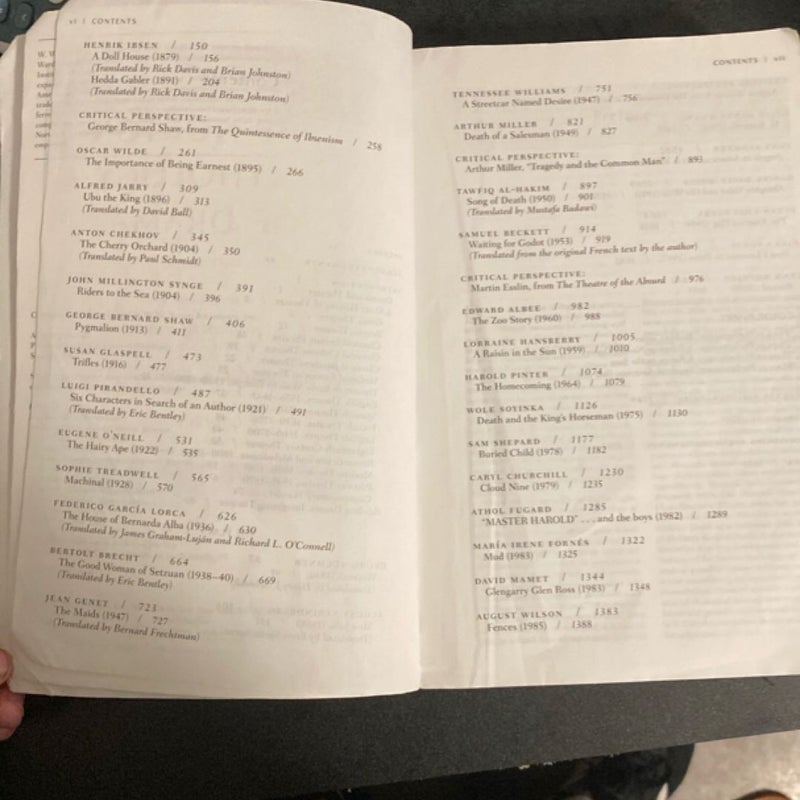 vi | CONTENTS
HENRIK IBSEN / 150
A Doll House (1879) / 156
(Translated by Rick Davis and Brian Johnston)
Hedda Gabler (1891) / 204
(Translated by Rick Davis and Brian Johnston)
CRITICAL PERSPECTIVE:
George Bernard Shaw, from The Quintessence of Ibsenism / 258
OSCAR WILDE / 261
The Importance of Being Earnest (1895) / 266
ALFRED JARRY / 309
Ubu the King (1896) / 313
(Translated by David Ball)
ANTON CHEKHOV / 345
The Cherry Orchard (1904) / 350
(Translated by Paul Schmidt)
JOHN MILLINGTON SYNGE / 391
Riders to the Sea (1904) / 396
GEORGE BERNARD SHAW / 406
Pygmalion (1913) / 411
SUSAN GLASPELL / 473
Trifles (1916) / 477
LUIGI PIRANDELLO / 487
Six Characters in Search of an Author (1921) / 491
(Translated by Eric Bentley)
EUGENE O'NEILL / 531
The Hairy Ape (1922) / 535
SOPHIE TREADWELL / 565
Machinal (1928) / 570
FEDERICO GARCÍA LORCA / 626
The House of Bernarda Alba (1936) / 630
(Translated by James Graham-Luján and Richard L. O'Connell)
BERTOLT BRECHT / 664
The Good Woman of Setzuan (1938–40) / 669
(Translated by Eric Bentley)
JEAN GENET / 723
The Maids (1947) / 727
(Translated by Bernard Frechtman)
CONTENTS | vii
TENNESSEE WILLIAMS / 751
A Streetcar Named Desire (1947) / 756
ARTHUR MILLER / 821
Death of a Salesman (1949) / 827
CRITICAL PERSPECTIVE:
Arthur Miller, "Tragedy and the Common Man" / 893
TAWFIQ AL-HAKIM / 897
Song of Death (1950) / 901
(Translated by Mustafa Badawi)
SAMUEL BECKETT / 914
Waiting for Godot (1953) / 919
(Translated from the original French text by the author)
CRITICAL PERSPECTIVE:
Martin Esslin, from The Theatre of the Absurd / 976
EDWARD ALBEE / 982
The Zoo Story (1960) / 988
LORRAINE HANSBERRY / 1005
A Raisin in the Sun (1959) / 1010
HAROLD PINTER / 1074
The Homecoming (1964) / 1079
WOLE SOYINKA / 1126
Death and the King's Horseman (1975) / 1130
SAM SHEPARD / 1177
Buried Child (1978) / 1182
CARYL CHURCHILL / 1230
Cloud Nine (1979) / 1235
ATHOL FUGARD / 1285
"MASTER HAROLD" . . . and the boys (1982) / 1289
MARÍA IRENE FORNÉS / 1322
Mud (1983) / 1325
DAVID MAMET / 1344
Glengarry Glen Ross (1983) / 1348
AUGUST WILSON / 1383
Fences (1985) / 1388